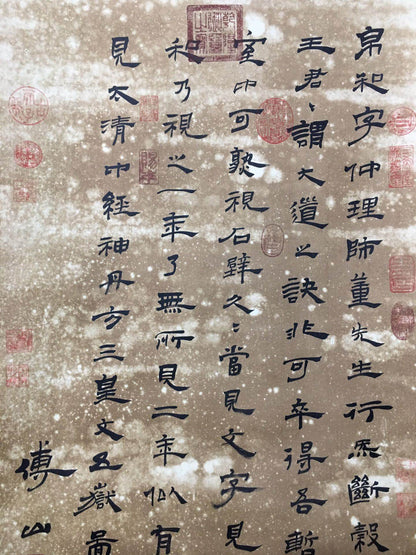 帛和字仲理師董先生行炁斷穀
王君〻謂大道之訣非可卒得吾暫
室中可熟視石壁久〻當見文字見
和乃視之一年了無所見二年似有
見太清中經神丹方三皇文五嶽啚
傅山